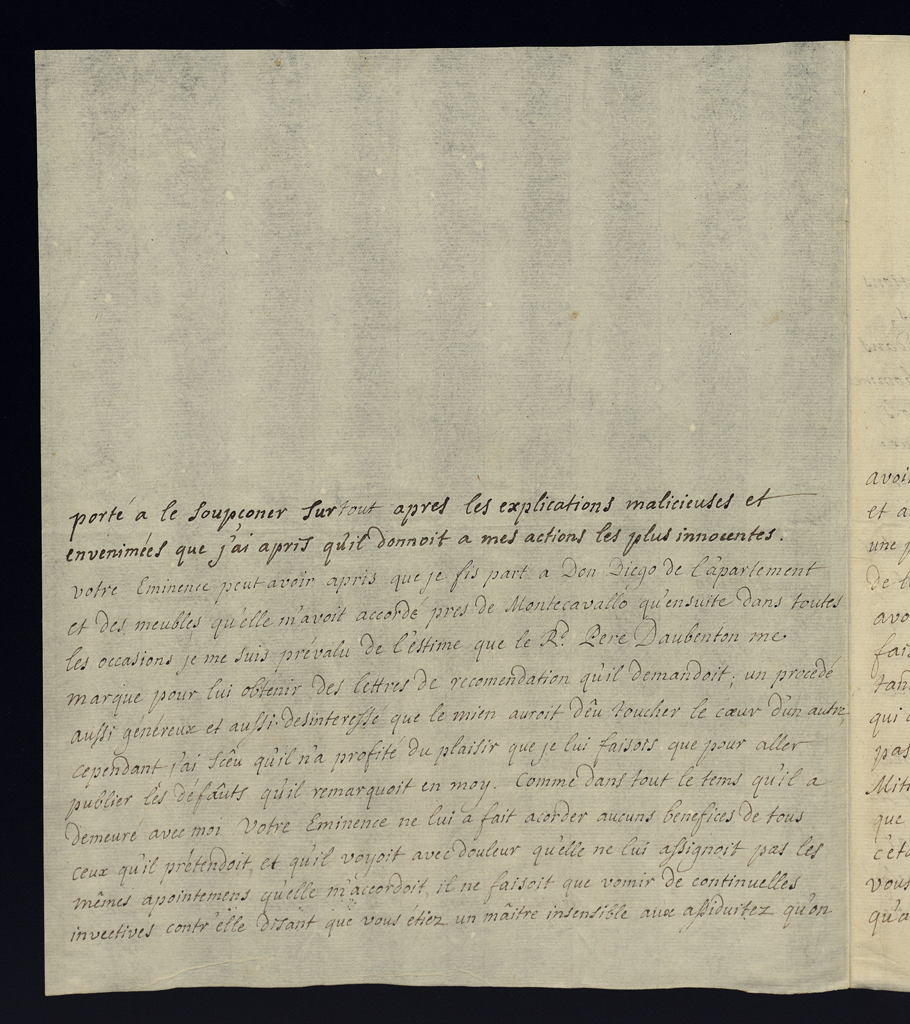 porté a le soupçoner surtout apres les explications malicieuses et
envenimées que j'ai apris qu'il donnoit a mes actions les plus innocentes.
votre Eminence peut avoir apris que je fis part a Don Diego de l'apartement
et des meubles qu'elle m'avoit accordé pres de Montecavallo qu'ensuite dans toutes
les occasions je me suis prévalu de l'éstime que le Rd. Pere Daubenton me
marque pour lui obtenir des lettres de recomendation qu'il demandoit; un procedé
aussi généreux et aussi desinteressé que le mien auroit dêu toucher le cœur d'un autre
cependant j'ai sçêu qu'il n'a profité du plaisir que je lui faisois que pour aller
publier les défauts qu'il remarquoit en moy. Comme dans tout le tems qu'il a
demeuré avec moi Votre Eminence ne lui a fait acorder aucuns benefices de tous
ceux qu'il prétendoit, et qu'il voyoit avec douleur qu'elle ne lui assignoit pas les
mêmes apointemens qu'elle m'accordoit, il ne faisoit que vomir de continuelles
invectives contr'elle disant que vous étiez un maitre insensible aux assiduitez qu'on
avoi
et a
une p
de l
avo
fais
tan
qui
pas
Mit
que
c'éta
vous
qu'a